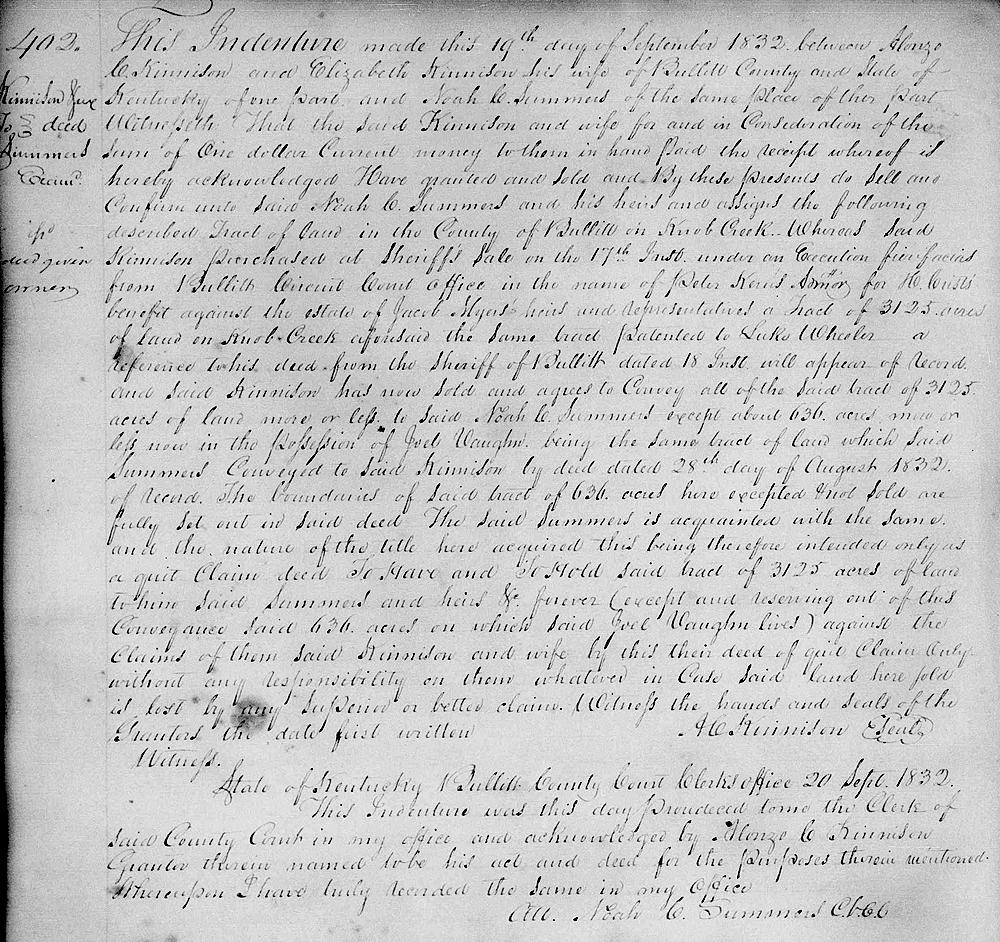 402.
Kinnison & ux
To } deed
Summers
Exam.d
deed given
owner
This Indenture made this 19th day of September 1832. between Alonzo
C. Kinnison and Elizabeth Kinnison his wife of Bullitt County and State of
Kentucky of one part and Noah C. Summers of the same place of ther part
Witnesseth That the said Kinnison and wife for and in Consideration of the
sum of One dollar Current money to them in hand paid the receipt whereof is
hereby acknowledged Have granted and sold and By these presents do sell and
Confirm unto said Noah C. Summers and his heirs and assigns the following
described Tract of land in the County of Bullitt on Knob Creek. Whereas said
Kinnison purchased at Sheriff's Sale on the 17th Inst. under an Execution fierifacias
from Bullitt Circuit Court Office in the name of Peter for H. Crists
benefit against the estate of Jacob Myers heirs and representatives a Tract of 3125 acres
of land on Knob Creek aforesaid the same tract patented to Luke Wheeler a
reference to his deed from the Sheriff of Bullitt dated 18 Inst. will appear of record
and said Kinnison has now sold and agrees to Convey all of the said tract of 3125.
acres of land more or less to said Noah C. Summers except about 636. acres more or
less now in the possession of Joel Vaughn. being the same tract of land which said
Summers Conveyed to said Kinnison by deed dated 28th day of August 1832.
of record. The boundaries of said tract of 636. acres here excepted & not sold are
fully set out in said deed The said Summers is acquainted with the same.
and the nature of the title here acquired this being therefore intended only as
a quit Claim deed To Have and To Hold said tract of 3125 acres of land
to him said Summers and heirs &c. forever (except and reserving out of this
Conveyance said 636. acres on which said Joel Vaughn lives) against the
Claims of them said Kinnison and wife by this their deed of quit Claim Only
without any responsibility on them whatever in Case said land here sold
is lost by any Superior or better claim. Witness the hands and seals of the
Grantors the date first written AC Kinnison Seal
Witness.
State of Kentucky Bullitt County Court Clerks office 20 Sept. 1832.
This Indenture was this day proudeced to me the Clerk of
said County Court in my office and acknowledged by Alonzo C Kinnison
Grantor therein named to be his act and deed for the purposes therein mentioned.
Whereupon I have truly recorded the same in my Office
Att. Noah C. Summers C.b.C.C